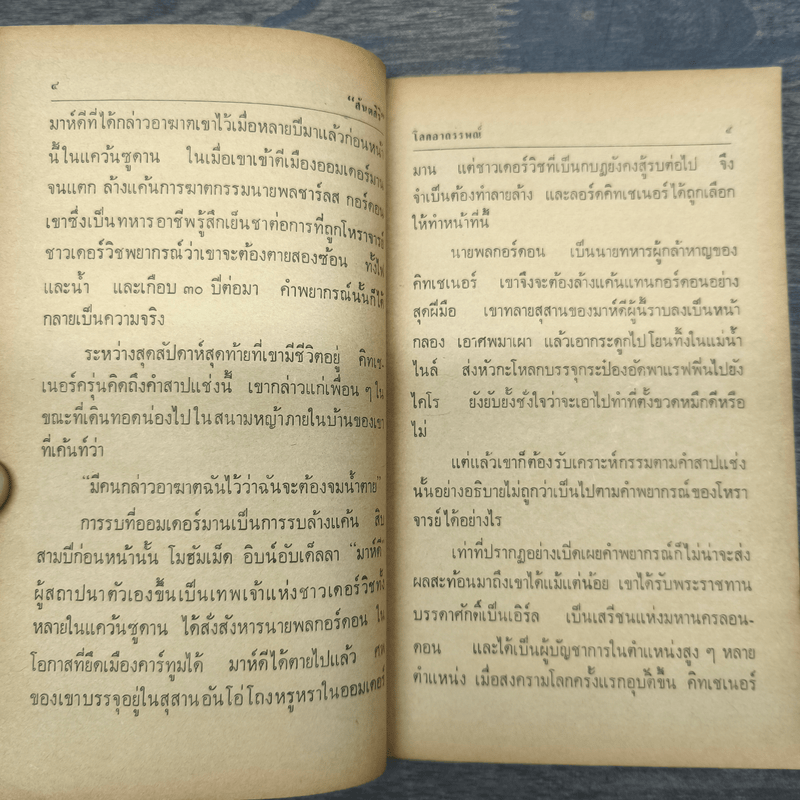 ๔
"สันตสิริ"
มาห์ดีที่ได้กล่าวอาฆาตเขาไว้เมื่อหลายปีมาแล้วก่อนหน้า
นี้ในแคว้นซูดาน ในเมื่อเขาเข้าตีเมืองออมเดอร์มาน
จนแตก ล้างแค้นการฆาตกรรมนายพลชาร์ลส กอร์ดอน
เขาซึ่งเป็นทหารอาชีพรู้สึกเย็นชาต่อการที่ถูกโหราจารย์
ชาวเดอร์วิชพยากรณ์ว่าเขาจะต้องตายสองซ้อน ทั้งไฟ
และน้ำ และเกือบ ๓๐ ปีต่อมา คำพยากรณ์นั้นก็ได้
กลายเป็นความจริง
ระหว่างสุดสัปดาห์สุดท้ายที่เขามีชีวิตอยู่ คิทเช-
เนอร์ครุ่นคิดถึงคำสาปแช่งนี้ เขากล่าวแก่เพื่อน ๆ ใน
ขณะที่เดินทอดน่องไปในสนามหญ้าภายในบ้านของเขา
ที่เค้นท์ว่า
"มีคนกล่าวอาฆาตฉันไว้ว่าฉันจะต้องจมน้ำตาย"
การรบที่ออมเดอร์มานเป็นการรบล้างแค้น สิบ
สามปีก่อนหน้านั้น โมฮัมเม็ด อิบน์อับเด็ลลา "มาห์ดี"
ผู้สถาปนาตัวเองขึ้นเป็นเทพเจ้าแห่งชาวเดอร์วิชทั้ง
หลายในแคว้นซูดาน ได้สั่งสังหารนายพลกอร์ดอน ใน
โอกาสที่ยึดเมืองคาร์ทูมได้ มาห์ดีได้ตายไปแล้ว ศพ
ของเขาบรรจุอยู่ในสุสานอันโอ่โถงหรูหราในออมเดอร์
โลกอาถรรพณ์
๕
มาน แต่ชาวเดอร์วิชที่เป็นกบฏยังคงสู้รบต่อไป จึง
จำเป็นต้องทำลายล้าง และลอร์ดคิทเชเนอร์ได้ถูกเลือก
ให้ทำหน้าที่นี้
นายพลกอร์ดอน เป็นนายทหารผู้กล้าหาญของ
คิทเชเนอร์ เขาจึงจะต้องล้างแค้นแทนกอร์ดอนอย่าง
สุดฝีมือ เขาทลายสุสานของมาห์ดีผู้นี้ราบลงเป็นหน้า
กลอง เอาศพมาเผา แล้วเอากระดูกไปโยนทิ้งในแม่น้ำ
ไนล์ ส่งหัวกะโหลกบรรจุกระป๋องอัดพาแรฟฟินไปยัง
ไคโร ยังยับยั้งชั่งใจว่าจะเอาไปทำที่ตั้งขวดหมึกดีหรือ
ไม่
แต่แล้วเขาก็ต้องรับเคราะห์กรรมตามคำสาปแช่ง
นั้นอย่างอธิบายไม่ถูกว่าเป็นไปตามคำพยากรณ์ของโหรา
จารย์ได้อย่างไร
เท่าที่ปรากฏอย่างเปิดเผยคำพยากรณ์ก็ไม่น่าจะส่ง
ผลสะท้อนมาถึงเขาได้แม้แต่น้อย เขาได้รับพระราชทาน
บรรดาศักดิ์เป็นเอิร์ล เป็นเสรีชนแห่งมหานครลอน-
ดอน และได้เป็นผู้บัญชาการในตำแหน่งสูง ๆ หลาย
ตำแหน่ง เมื่อสงครามโลกครั้งแรกอุบัติขึ้น คิทเชเนอร์